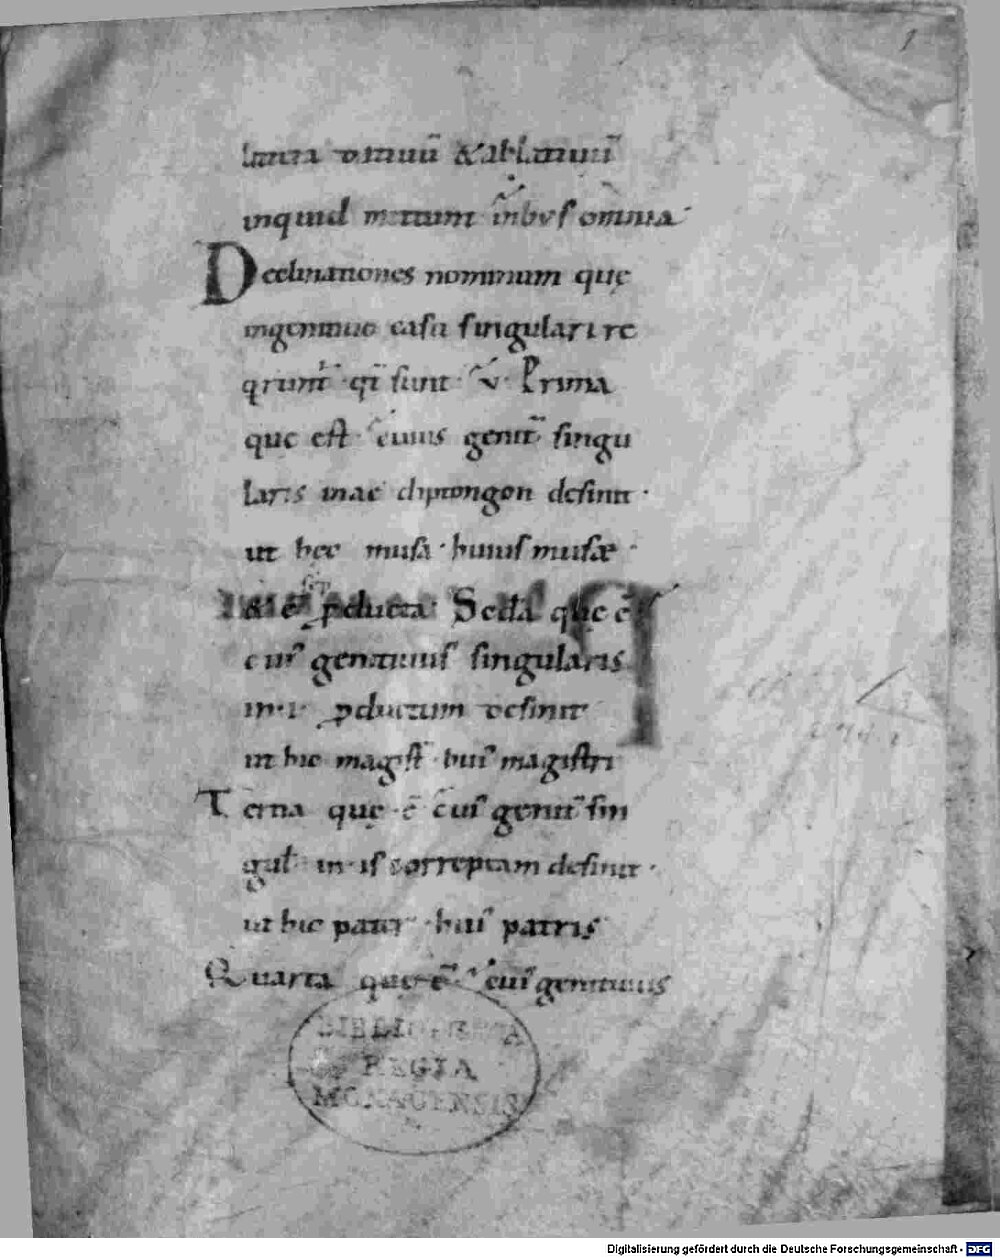 1
datiuū &ablatiuū
inquid mittunt īnbus omnia
Declinationes nominum quę
ingenitiuo casu singulari re
qrunt᷑ · qt sunt · v · Prima
que est · cuius genit̄ singu
laris inae diptongon desinit ·
ut hęc musa · huius musæ ·
& ē p̱ducta · Scda quę ē
cuiꝰ genitiuus singularis
in · i · p̱ductum desinit
ut hic magist̄ · huiꝰ magistri
Tertia quę · ē cuiꝰ genit̄ sin
gul̄ in · is correptam desinit ·
ut hic pater · huiꝰ patris
Quarta quę ē · cuiꝰ genitiuus
BIBLIOTHECA
REGIA
MONACENSIS
Digitalisierung gefördert durch die Deutsche Forschungsgemeinschaft - DFG